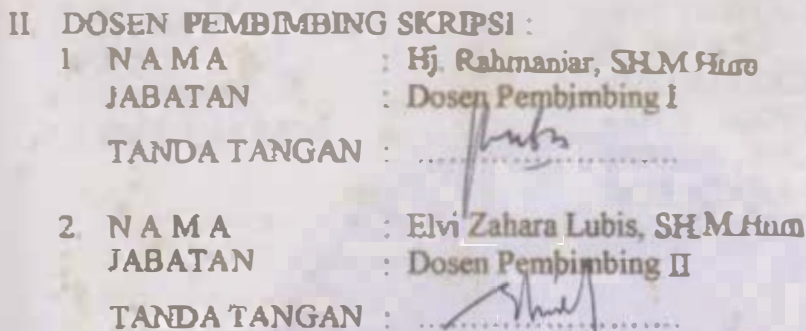 II DOSEN PEMBIMBING SKRIPSI :
1. NAMA : Hj. Rahmaniar, SH.M.Hum
JABATAN : Dosen Pembimbing I
TANDA TANGAN : ....................
2. NAMA : Elvi Zahara Lubis, SH.M.Hum
JABATAN : Dosen Pembimbing II
TANDA TANGAN : ....................